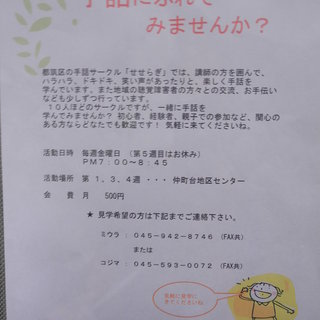 手話にふれて
みませんか？
都筑区の手話サークル「せせらぎ」では、講師の方を囲んで、
ハラハラ、ドキドキ、笑い声があったりと、楽しく手話を
学んでいます。また地域の聴覚障害者の方々との交流、お手伝い
なども少しずつ行っています。
１０人ほどのサークルですが、一緒に手話を
学んでみませんか？ 初心者、経験者、親子での参加など、関心の
ある方ならどなたでも歓迎です！ 気軽に来てくださいね。
活動日時 毎週金曜日（第５週目はお休み）
ＰＭ７：００～８：４５
活動場所 第１、３、４週・・・仲町台地区センター
会 費 月 500円
★ 見学希望の方は下記までご連絡下さい。
ミウラ：０４５－９４２－８７４６（FAX共）
または
コジマ：０４５－５９３－００７２（FAX共）
気軽に見学に
きてくださいね